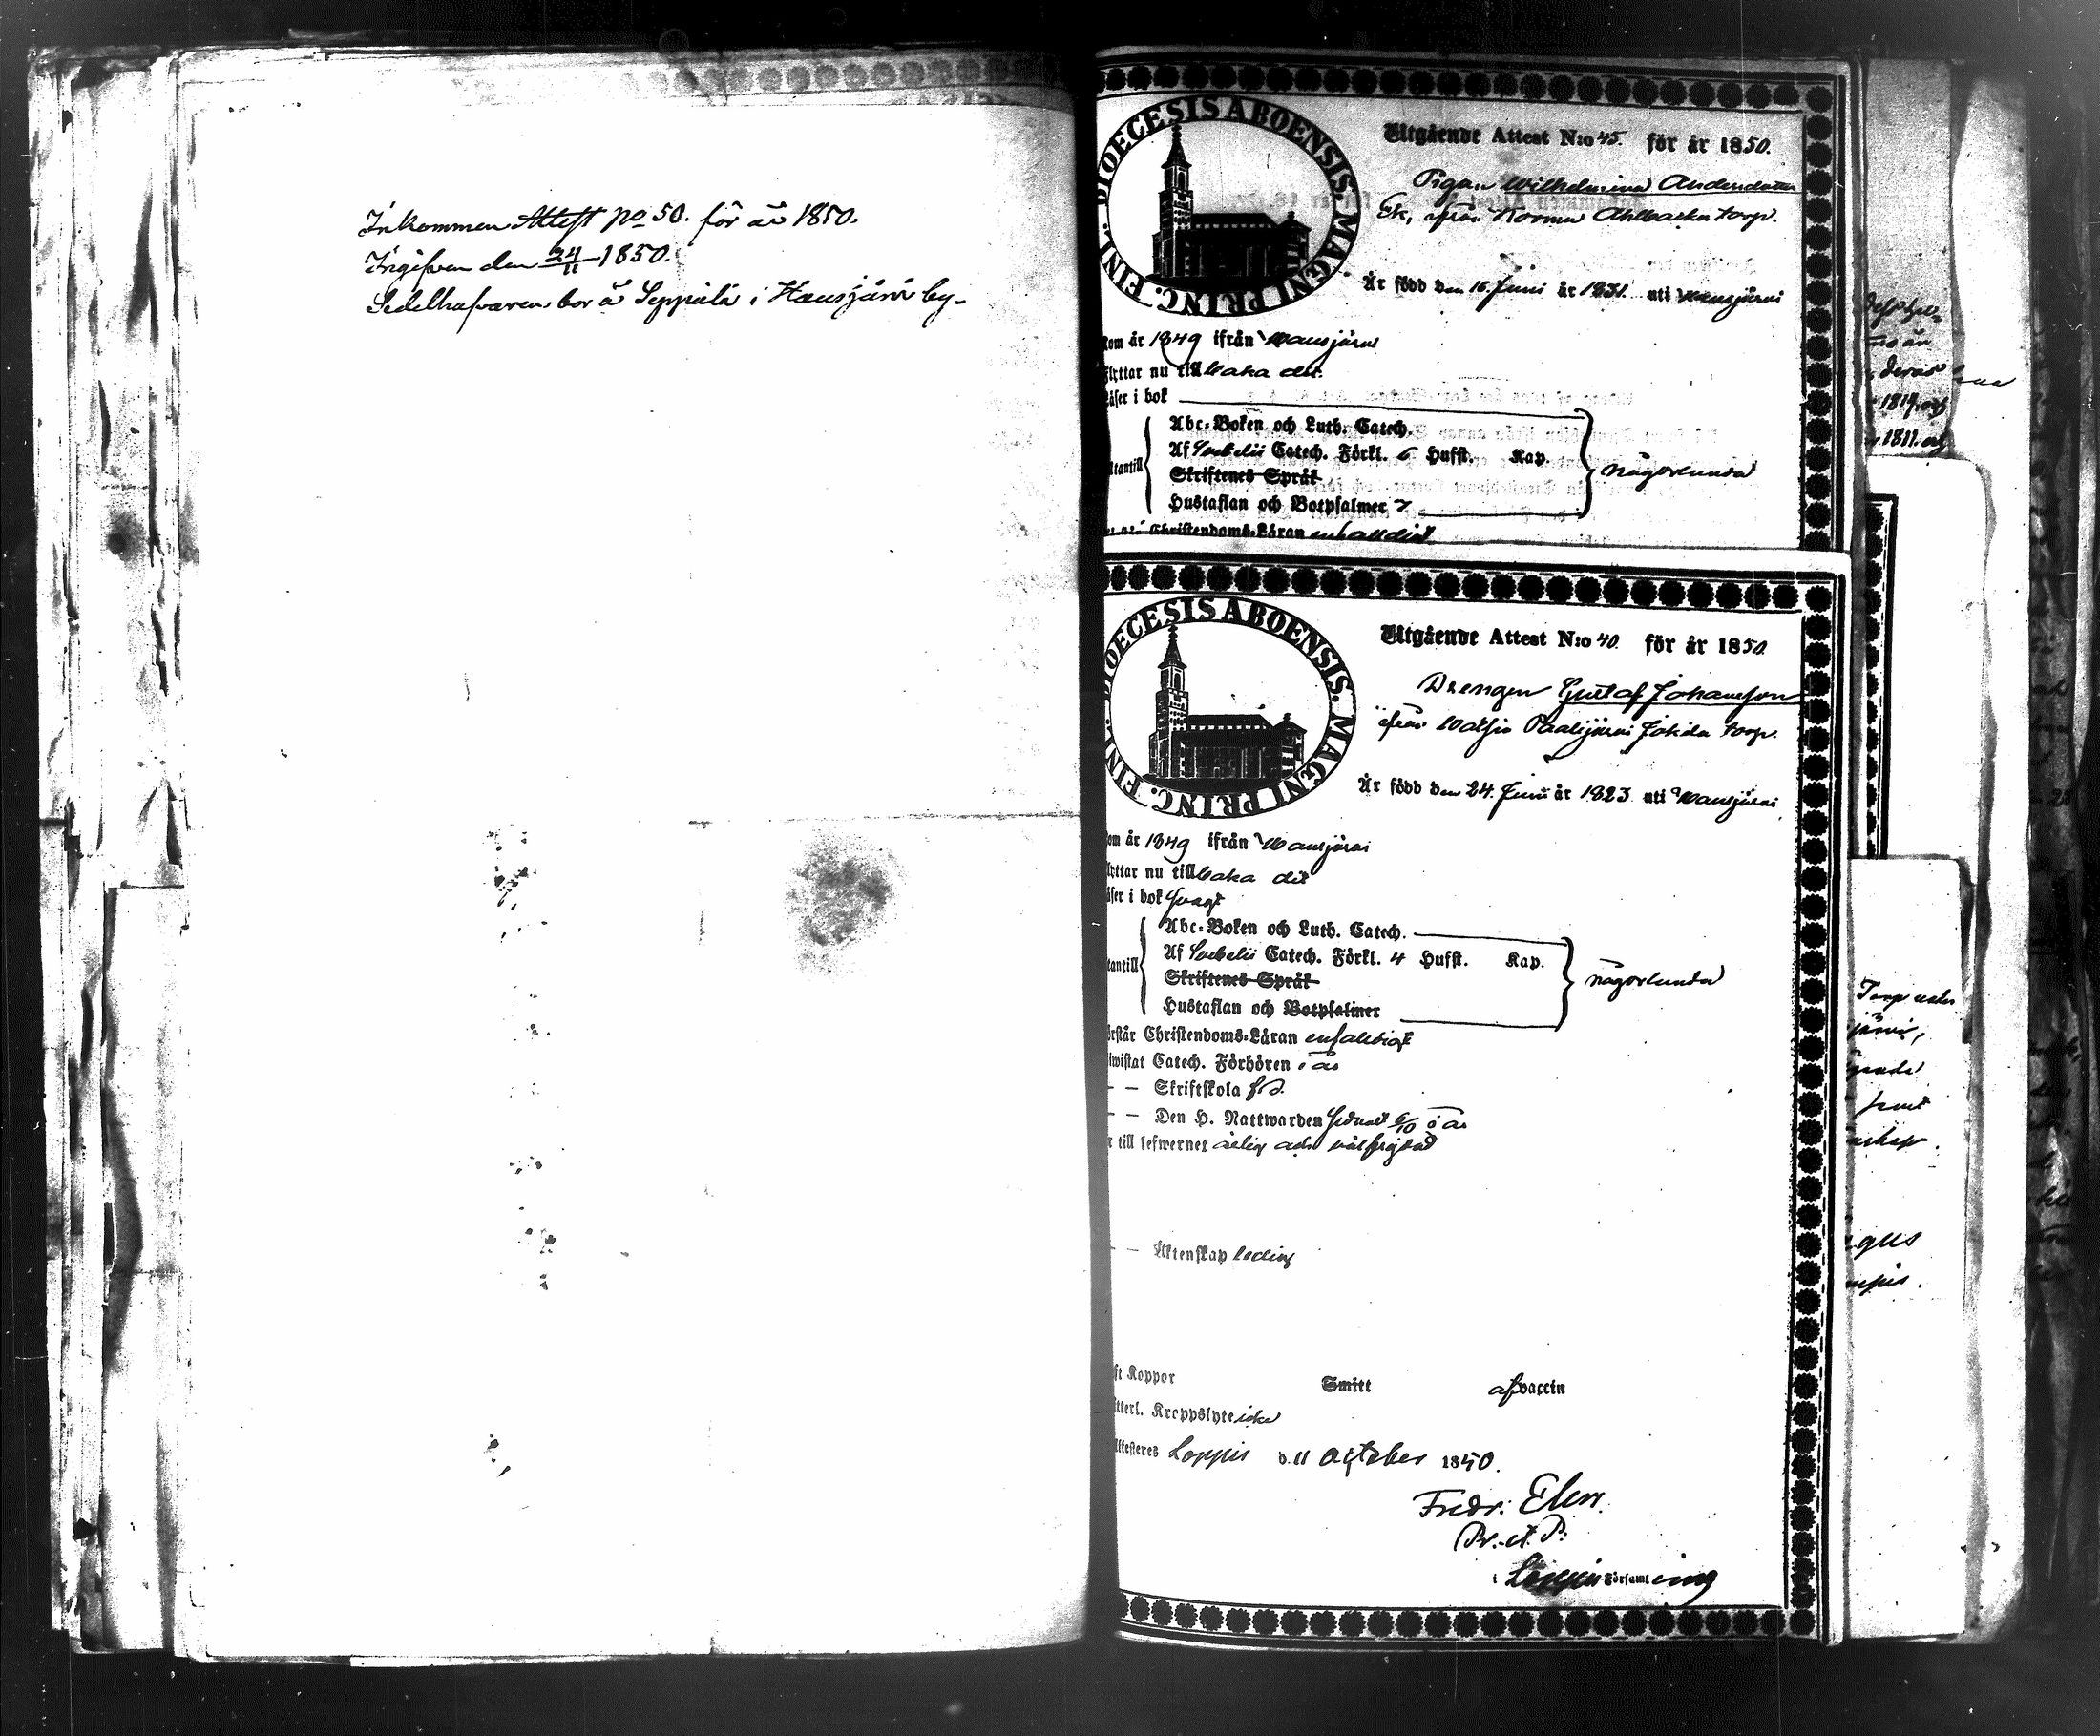 Inkommen Attest no 50. för år 1850.
Ingifven den 24/11 1850.
Sedelhafvaren bor å Seppälä i Hausjärvi by.
DIOECESIS ABOENSIS. MAGNI PRINC. FINL.
Utgående Attest N:o 45. för år 1850.
Pigan Wilhelmina Andersdotter
Ek, ifrån Kormu Ahlbacka torp.
Är född den 16. Juni år 1831. uti Hausjärvi
kom år 1849 ifrån Hausjärvi
flyttar nu tillbaka dit.
läser i bok
Abc-Boken och Luth. Catech.
utantill Af Svebelii Catech. Förkl. 6 Hufst. Kap. någorlunda
Skriftenes Språk
Hustaflan och Botpsalmer 7
Christendoms-Läran enfaldigt
DIOECESIS ABOENSIS. MAGNI PRINC. FINL.
Utgående Attest N:o 40. för år 1850.
Drengen Gustaf Johansson
ifrån torp.
Är född den 24. Juni år 1823 uti Hausjärvi
kom år 1849 ifrån Hausjärvi
flyttar nu tillbaka dit
läser i bok svagt
Abc-Boken och Luth. Catech.
utantill Af Svebelii Catech. Förkl. 4 Hufst. Kap. någorlunda
Skriftenes Språk
Hustaflan och Botpsalmer
förstår Christendoms-Läran enfaldigt
biwistat Catech. Förhören i år
— — Skriftskola
— — Den H. Nattwarden sednast 6/10 i år
är till lefwernet ärlig och välfrejdad
— — Äktenskap ledig
haft Koppor Smitt af vaccin
ytterl. Kroppslyte icke
Attesteres Loppis d. 11 October 1850.
Fredr: Elers.
Pr. et P:
i Loppis Församling